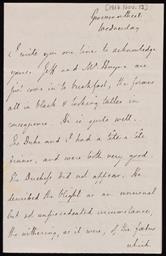 [1864 Nov. 12]
Grosvenor Street.
Wednesday
I write you one line to acknowledge
yours. Jeff and Mr Hope are
just come in to breakfast, the former
all in black & looking taller in
consequence. He is quite well.
The Duke and I had a tete a tete
dinner, and were both very good
The Duchess did not appear. He
described the blight as an universal
but not unprecedented circumstance,
the withering, as it were, of the
which